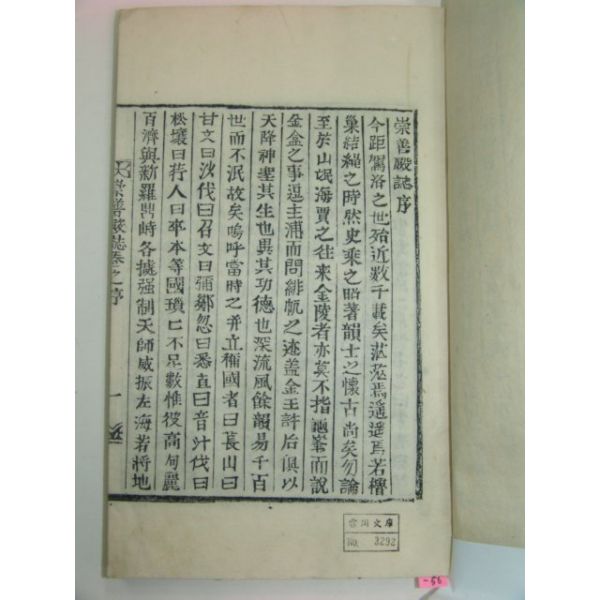 崇善殿誌序
今距駕洛之世殆近數千載矣茫茫焉遥遥焉若橧
巢結繩之時然史乘之昭著韻士之懷古尚矣勿論
至於山氓海賈之往來金陵者亦莫不指龜峯而說
金盒之事過主浦而問緋帆之迹盖金王許后俱以
天降神聖其生也異其功德也深流風餘韻易千百
世而不泯故矣嗚呼當時之並立稱國者曰萇山曰
甘文曰沙伐曰召文曰彌鄒忽曰悉直曰音汁伐曰
松壤曰荇人曰卒本等國瑣匕不足數惟彼高句麗
百濟與新羅鼎峙各據强制天師威振左海若將地
崇善殿誌卷之序
一
NO. 3292
-56